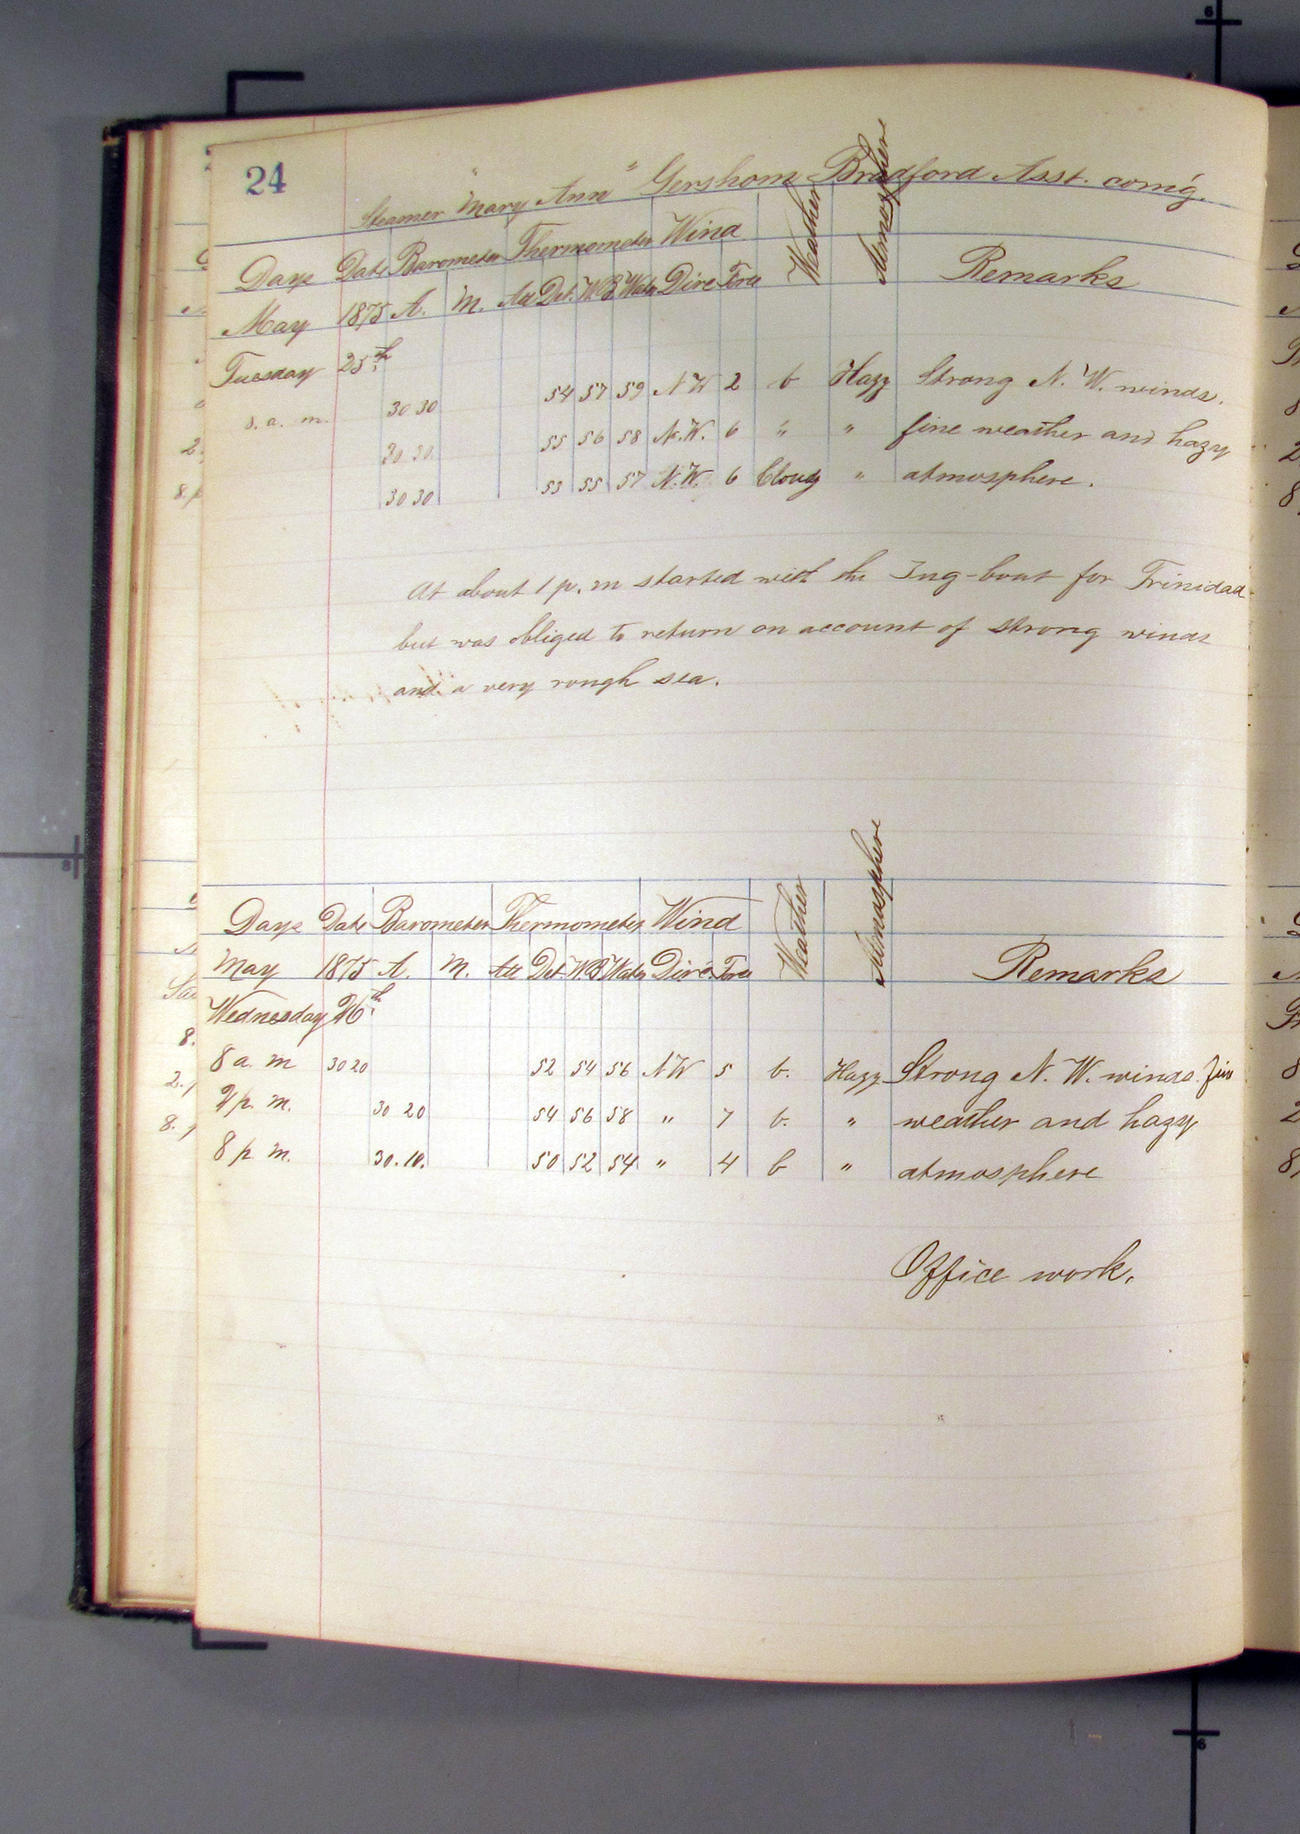 24
Steamer "Mary Ann" Gershom Bradford Asst. com'g.
Days Date Barometer Thermometer Wind Weather Atmosphere Remarks
May 1875 A. M. Att Det. W B Water Dire Force
Tuesday 25th.
8. a. m. 30 30 54 57 59 N W 2 b Hazy Strong N. W. winds.
30 30 55 56 58 N.W. 6 " " fine weather and hazy
30 30 53 55 57 N.W. 6 Cloudy " atmosphere.
At about 1 p. m started with the Tug-boat for Trinidad
but was obliged to return on account of strong winds
and a very rough sea.
Days Date Barometer Thermometer Wind Weather Atmosphere Remarks
May 1875 A. M. Att Det. W B Water Dire. Force
Wednesday 26th.
8 a. m 30 20 52 54 56 N W 5 b. Hazy Strong N. W. winds. fine
2 p. m. 30 20 54 56 58 " 7 b. " weather and hazy
8 p. m. 30.10. 50 52 54 " 4 b " atmosphere
Office work.